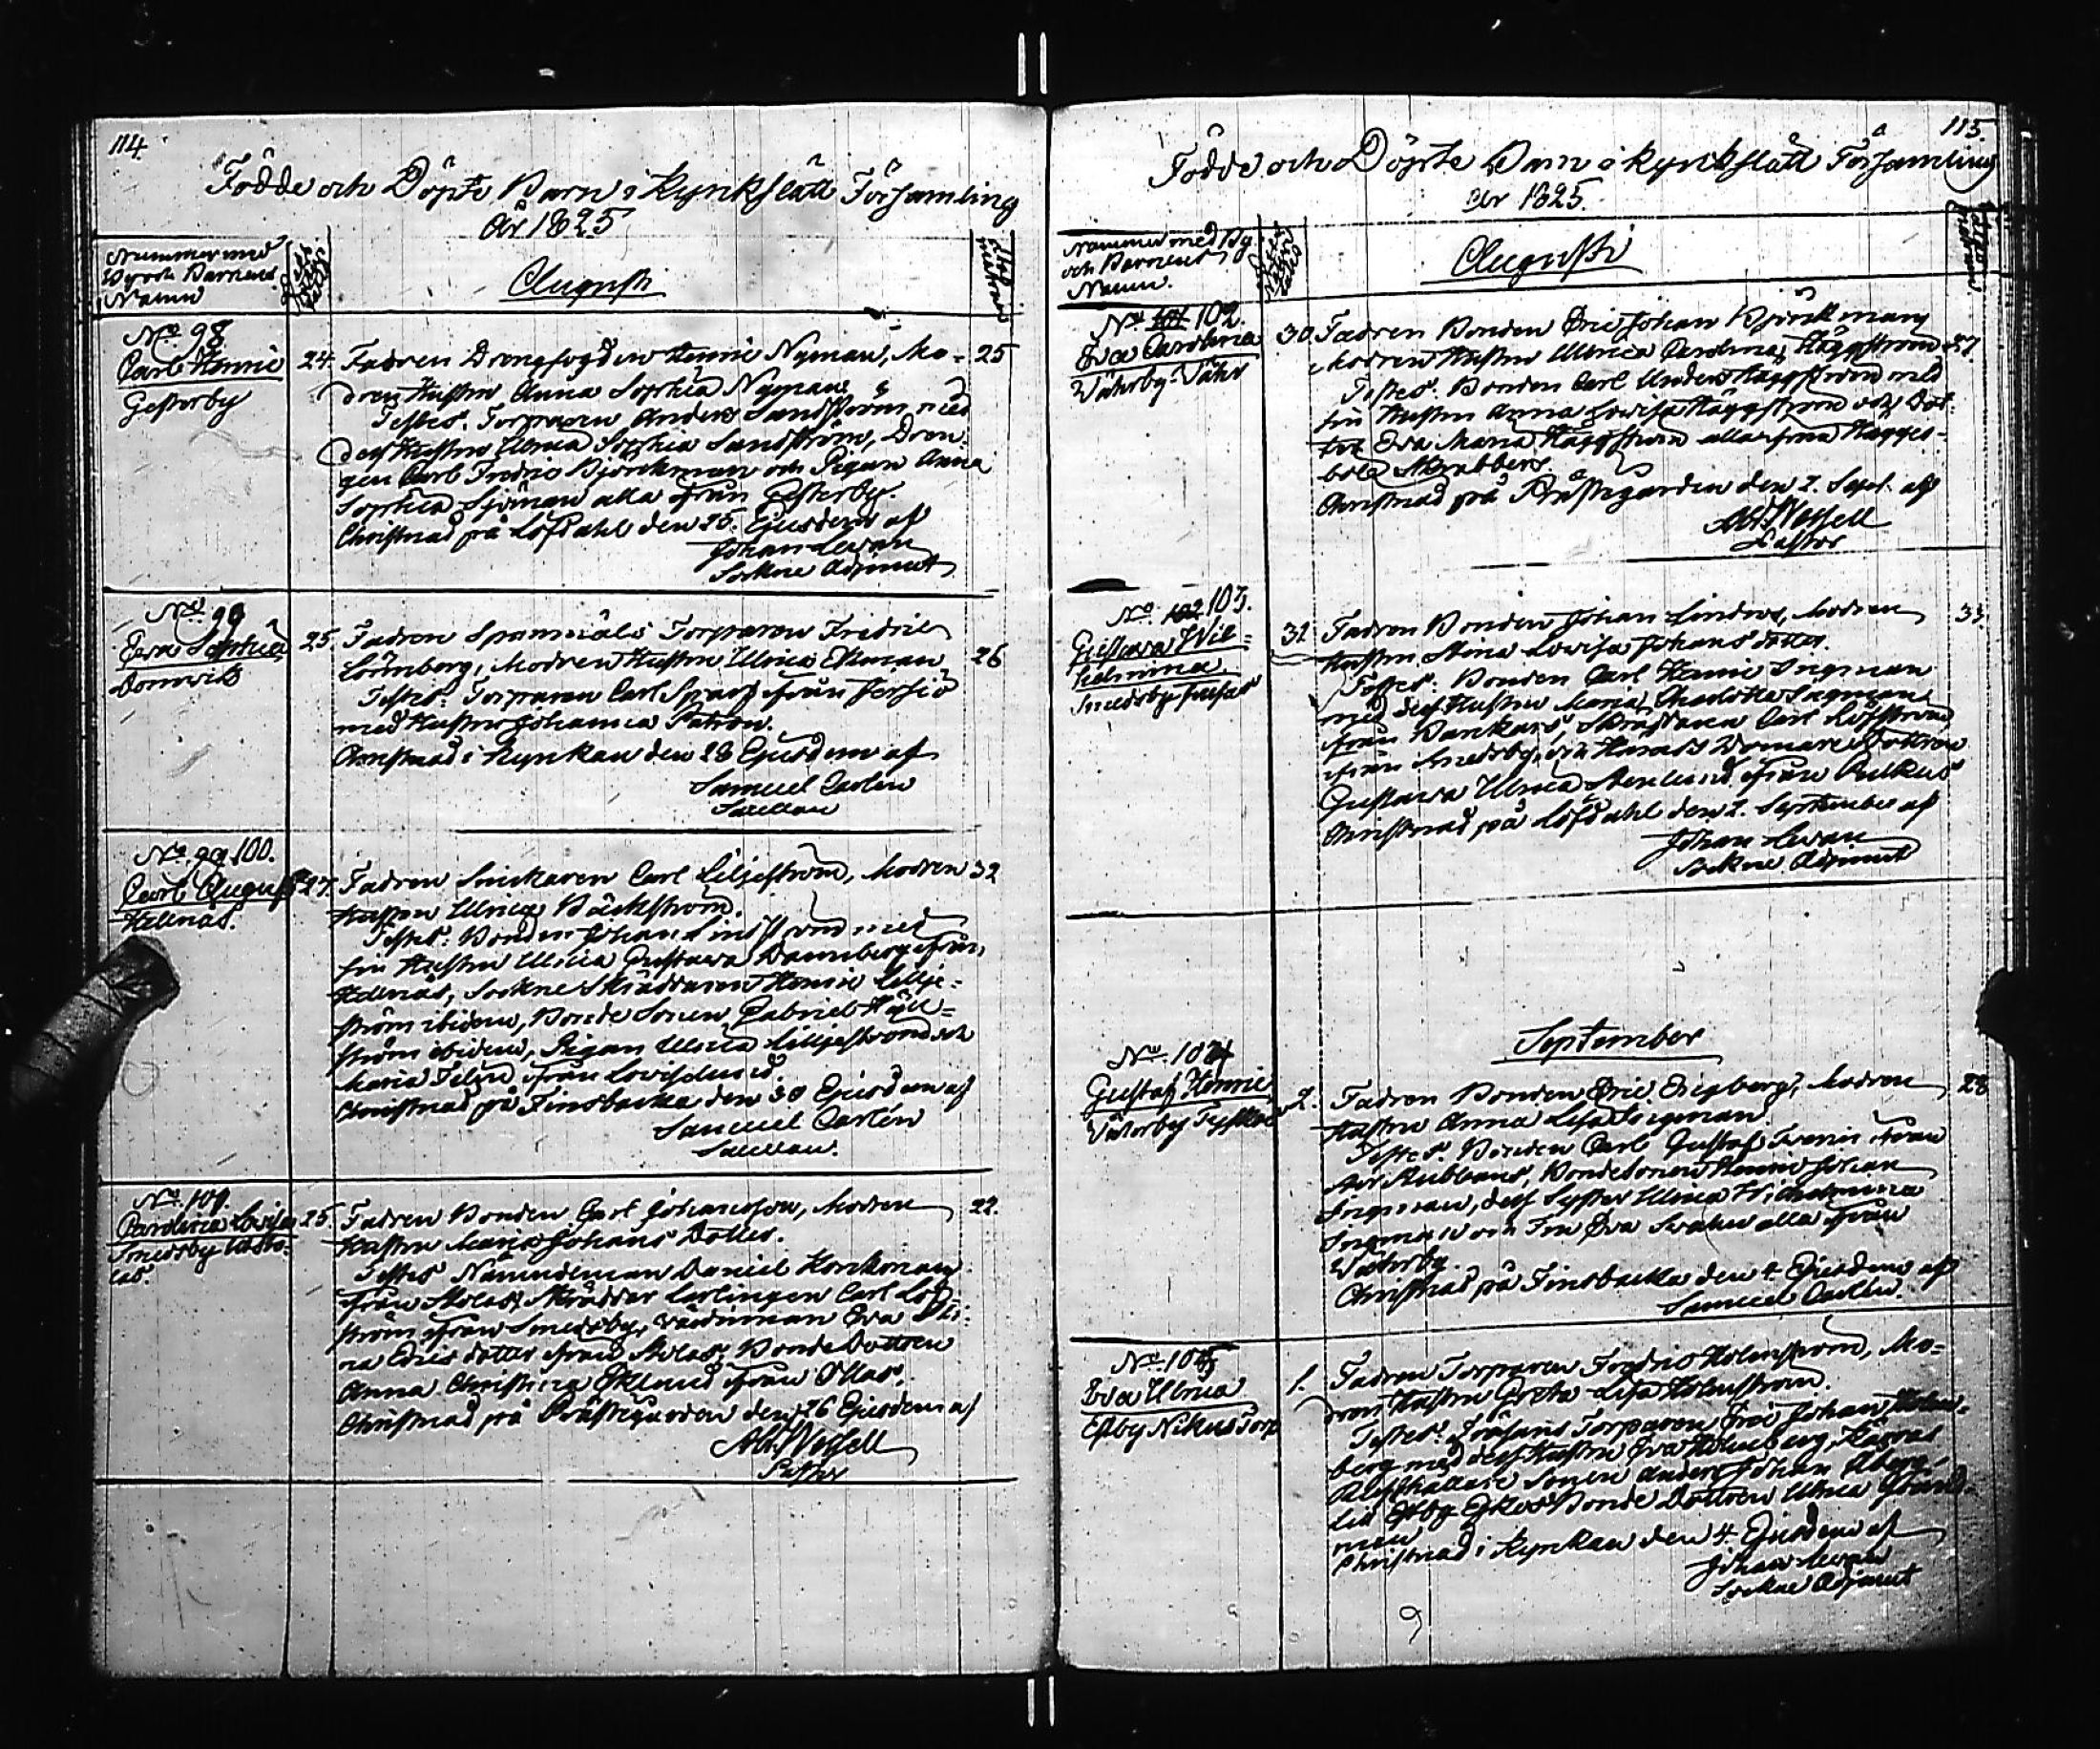 114.
Födde och Döpte Barn i Kyrkslätt Församling
År 1825
Nummer med
By och Barnens
Namn
Augusti
No 98.
Carl Henric
Gesterby
24.
Fadren Drengfogden Henric Nyman, Mo-
dren Hustru Anna Sophia Nyman
Testes. Torparen Anders Sandström med
dess Hustru Ulrica Sophia Sandström, Dren-
gen Carl Fredric Björckman och Pigan Anna
Sophia Sjöman alla från Gesterby.
Christnad på Löfdahl den 25. Ejusdem af
Johan Levan
Sockne Adjunct
25
No 99
Eva Sophia
Domwik
25
Fadren Spannmåls Torparen Fredric
Lönnberg, Modren Hustru Ulrica Ekman
Testes: Torparen Carl Sparf från Jersiö
med Hustru Johanna Patron.
Christnad i Kyrkan den 28 Ejusdem af
Samuel Carlén
Sacellan
26
No 99 100.
Carl August
Hellnäs.
27.
Fadren Snickaren Carl Liljeström, Modren
Hustru Ulrica Bäckström.
Testes: Bonden Johan Lindström med
sin Hustru Ulrica Gustava Dannberg från
Hellnäs, Sockne Skräddaren Henric Lillje-
ström ibidem, Bonde Sonen Gabriel
ström ibidem, Pigan Ulrica Lilljeström och
Maria från
Christnad på Finsbacka den 30 Ejusdem af
Samuel Carlén
Sacellan.
32
No 101.
Carolina Lovisa
Smedsby
25
Fadren Bonden Carl Johansson, Modren
Hustru Maria Johans Dotter.
Testes Nämndeman Daniel Korckman
från Skrädder Lärlingen Carl Löf-
ström från Smedsby, Eva Sti-
na Erics dotter från Bonde Dottren
Anna Christina Eklund från Ollas.
Christnad på Prästegården den 26 Ejusdem af
Abr. Wessell
Pastor
22.
115
Födde och Döpte Barn i Kyrckslätt Församling
År 1825.
Nummer med By
och Barnens
Namn.
Augusti
No 101 102.
Eva Carolina
Währby-Währ
30
Fadren Bonden Eric Johan Björckman
Modren Hustru Ulrica Carolina Häggström
Testes. Bonden Carl Anders Häggström med
sin Hustru Anna Lovisa Häggström och Dot-
ter Eva Maria Häggström alla från Hägges-
böle
Christnad på Prästegården den 2. Sept. af
Abr. Wessell
Pastor
27
No 102 103.
Gustava Wil-
helmina
Smedsby
31
Fadren Bonden Johan Lindros, Modren
Hustru Stina Lovisa Johans Dotter.
Testes: Bonden Carl Henric Ingman
med dess Hustru Maria Charlotta Ingman
från Danckars, Skräddaren Carl Löfström
från Smedsby, och Härads Domare Dottren
Gustava Ulrica från
Christnad på Löfdahl den 2. September af
Johan Levan
Sockne Adjunct
33
September
No 104
Gustaf Henric
Währby
2.
Fadren Bonden Eric Engberg, Modren
Hustru Anna Lisa Ingman.
Testes. Bonden Carl Gustaf från
Bondesonen Henric Johan
Ingman, dess Syster Ulrica Wilhelmina
Ingman och Fru Eva Swahn alla från
Währby.
Christnad på Finsbacka den 4. Ejusdem af
Samuel Carlén
28
No 105
Eva Ulrica
Estby Nikus Torp
1.
Fadren Torparen Fredric Holmström, Mo-
dren Hustru Greta Lisa Holmström.
Testes: Torparen Eric Johan Holm-
berg med dess Hustru Eva Holmberg,
Sonen Anders Johan Åberg
Estby Bonde Dottren Ulrica
man
Christnad i Kyrkan den 4. Ejusdem af
Johan Levan
Sockne Adjunct
9